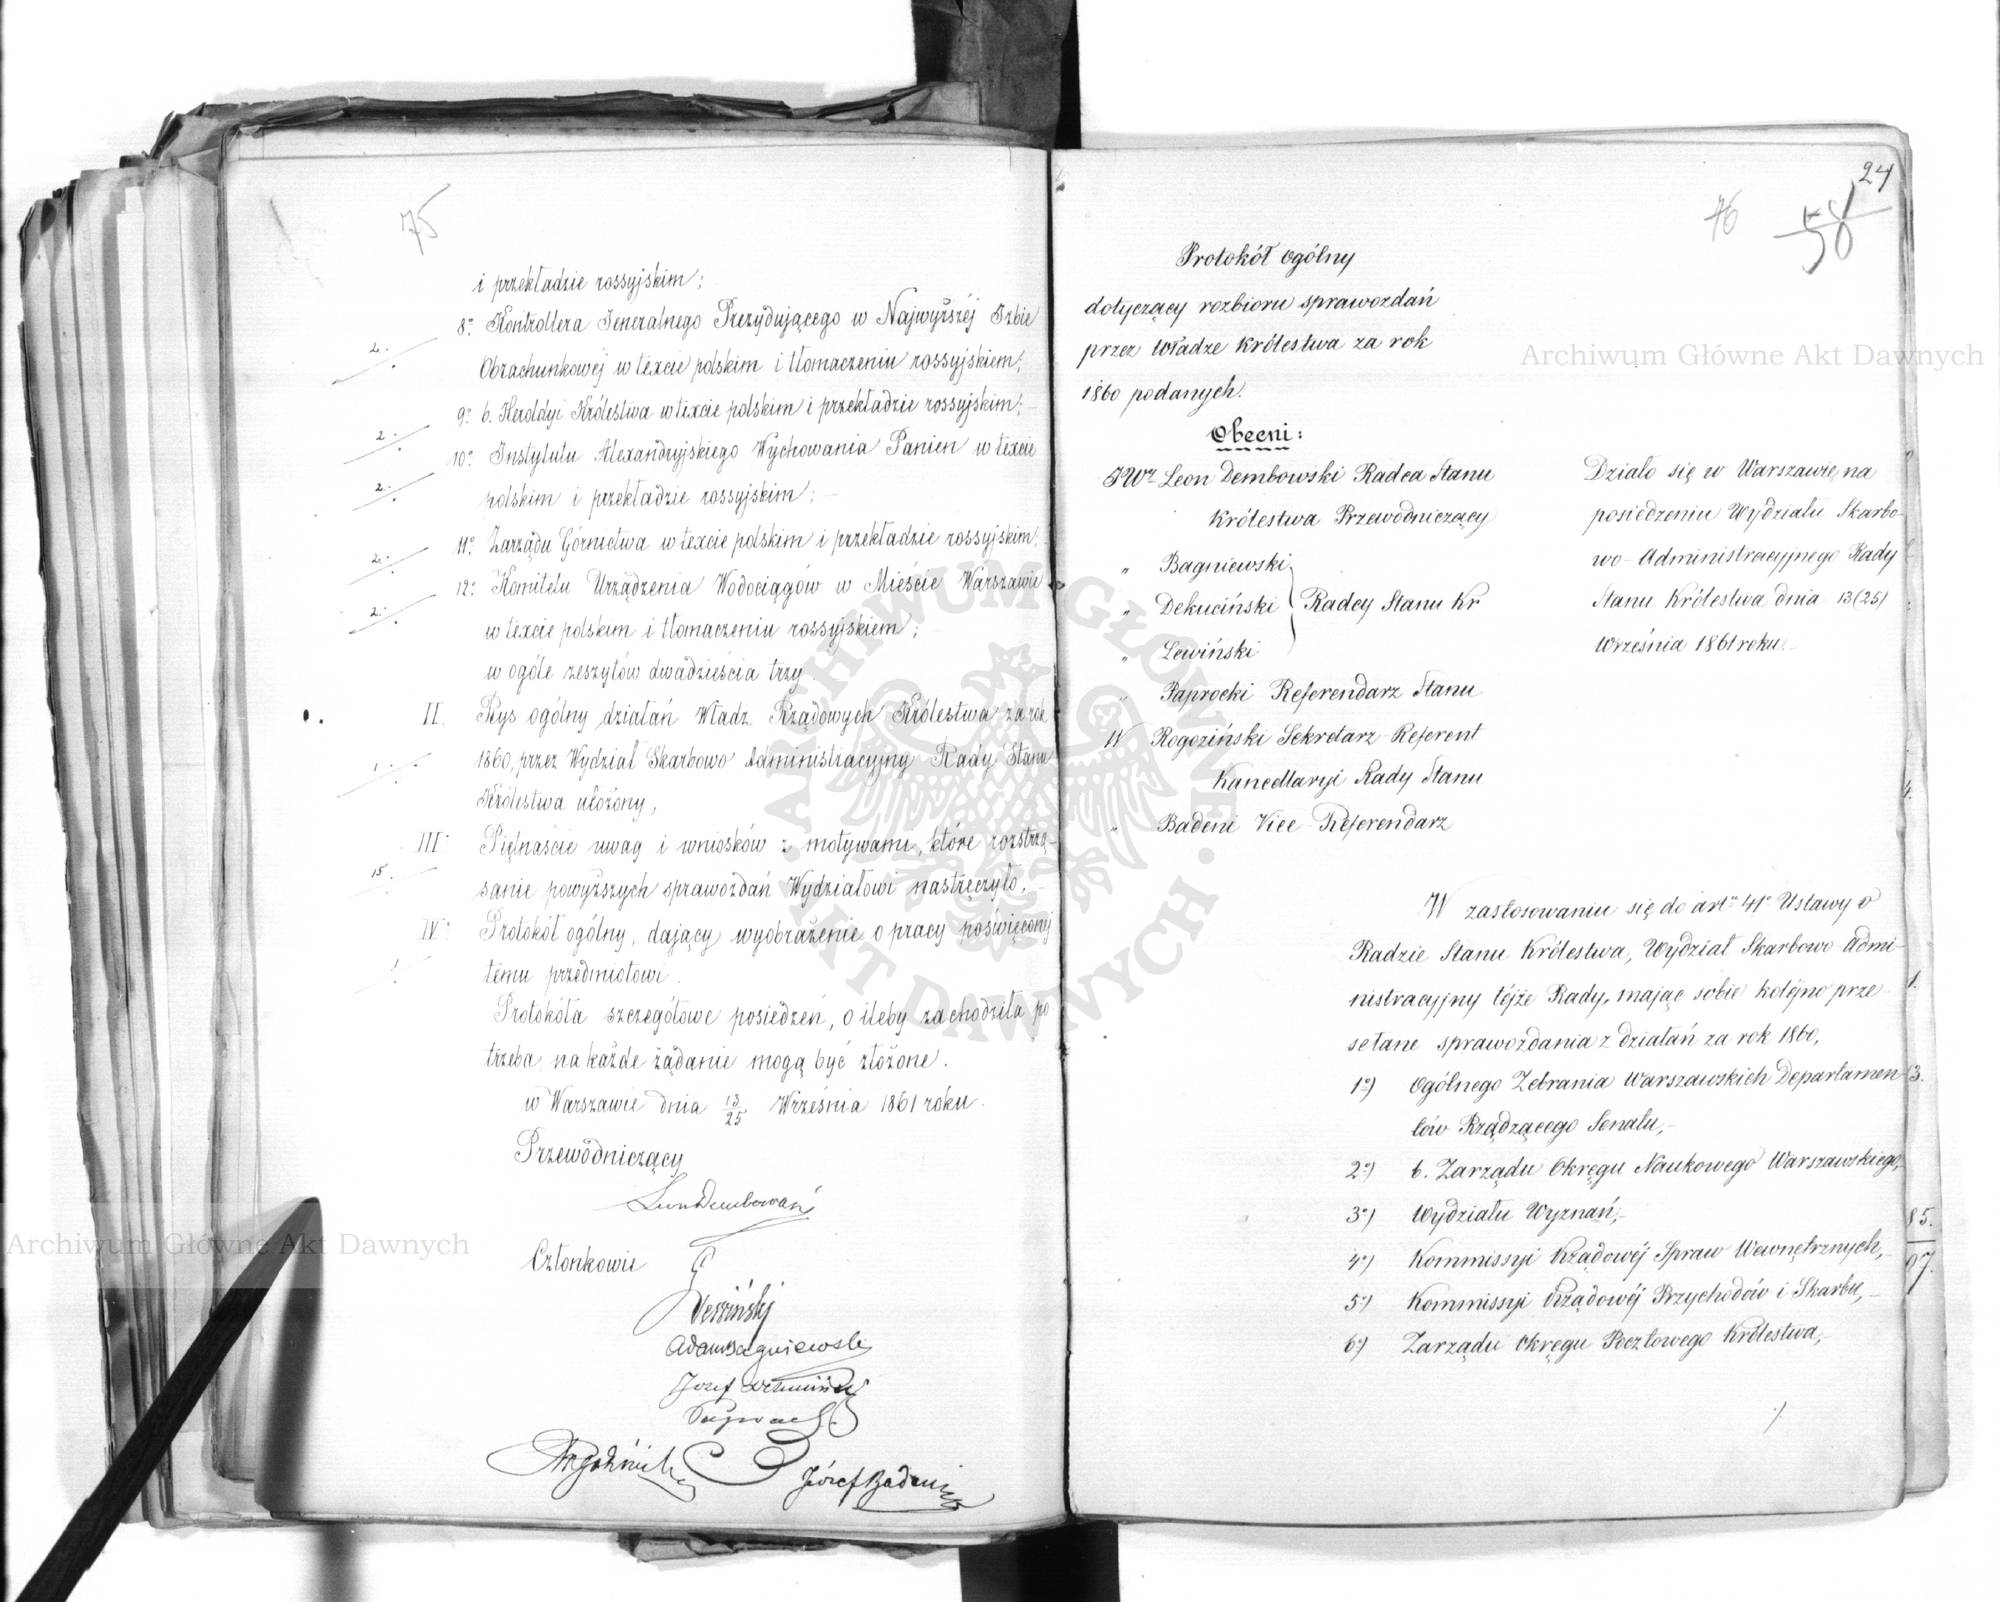 75
i przekładzie rossyjskim;
2.
8o Kontrollera Jeneralnego Prezydującego w Najwyższéj Izbie
Obrachunkowéj w texcie polskim i tłomaczeniu rossyjskiem;
2.
9o b. Heroldyi Królestwa w texcie polskim i przekładzie rossyjskim;
2.
10o Instytutu Alexandryjskiego Wychowania Panien w texcie
polskim i przekładzie rossyjskim;
2.
11o Zarządu Górnictwa w texcie polskim i przekładzie rossyjskim;
2.
12o Komitetu Urządzenia Wodociągów w Mieście Warszawie
w texcie polskim i tłomaczeniu rossyjskiem;
w ogóle zeszytów dwadzieścia trzy.
II. Rys ogólny działań Władz Rządowych Królestwa za rok
1.
1860, przez Wydział Skarbowo Administracyjny Rady Stanu
Królestwa ułożony,
III Piętnaście uwag i wniosków z motywami, które rozstrzą-
15.
sanie powyższych sprawozdań Wydziałowi nastręczyło,
IV Protokół ogólny, dający wyobrażenie o pracy poświęconej
1.
temu przedmiotowi.
Protokóła szczegółowe posiedzeń, o ileby zachodziła po
trzeba, na każde żądanie mogą być złożone.
w Warszawie dnia 13/25 Września 1861 roku.
Przewodniczący
Leon Dembowski
Członkowie
Adam Bagniewski
Józef Badeni
24
76
58
Protokół ogólny
dotyczący rozbioru sprawozdań
przez Władze Królestwa za rok
1860 podanych.
Obecni:
JWr Leon Dembowski Radca Stanu
Królestwa Przewodniczący
" Bagniewski
" Dekuciński Radcy Stanu Kr
" Lewiński
" Paprocki Referendarz Stanu
W Rogoziński Sekretarz-Referent
Kancellaryi Rady Stanu
" Badeni Vice-Referendarz
Działo się w Warszawie, na
posiedzeniu Wydziału Skarbo-
wo-Administracyjnego Rady
Stanu Królestwa dnia 13(25)
Września 1861 roku.-
W zastosowaniu się do arto 41o Ustawy o
Radzie Stanu Królestwa, Wydział Skarbowo-Admi-
nistracyjny téjże Rady, mając sobie koléjno prze-
słane sprawozdania z działań za rok 1860,
1o) Ogólnego Zebrania Warszawskich Departamen-
tów Rządzącego Senatu,-
2o) b. Zarządu Okręgu Naukowego Warszawskiego,
3o) Wydziału Wyznań,-
4o) Kommissyi Rządowéj Spraw Wewnętrznych,-
5o) Kommissyi Rządowéj Przychodów i Skarbu,-
6o) Zarządu Okręgu Pocztowego Królestwa,-
Archiwum Główne Akt Dawnych
Archiwum Główne Akt Dawnych
ARCHIWUM GŁÓWNE AKT DAWNYCH